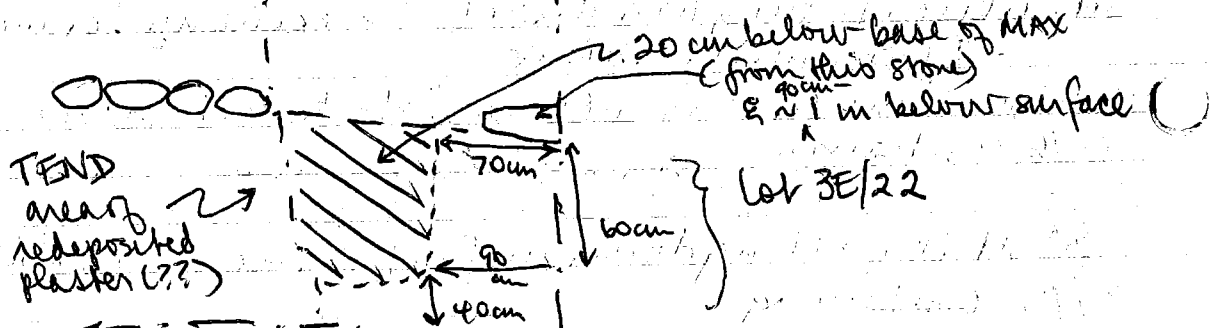 ~ 20 cm below base of MAX
(from this stone)
90cm-
& ~ 1 m below surface
TEND
area of
redeposited
plaster (??)
70cm
60cm
90
cm
40cm
Lot 3E/22